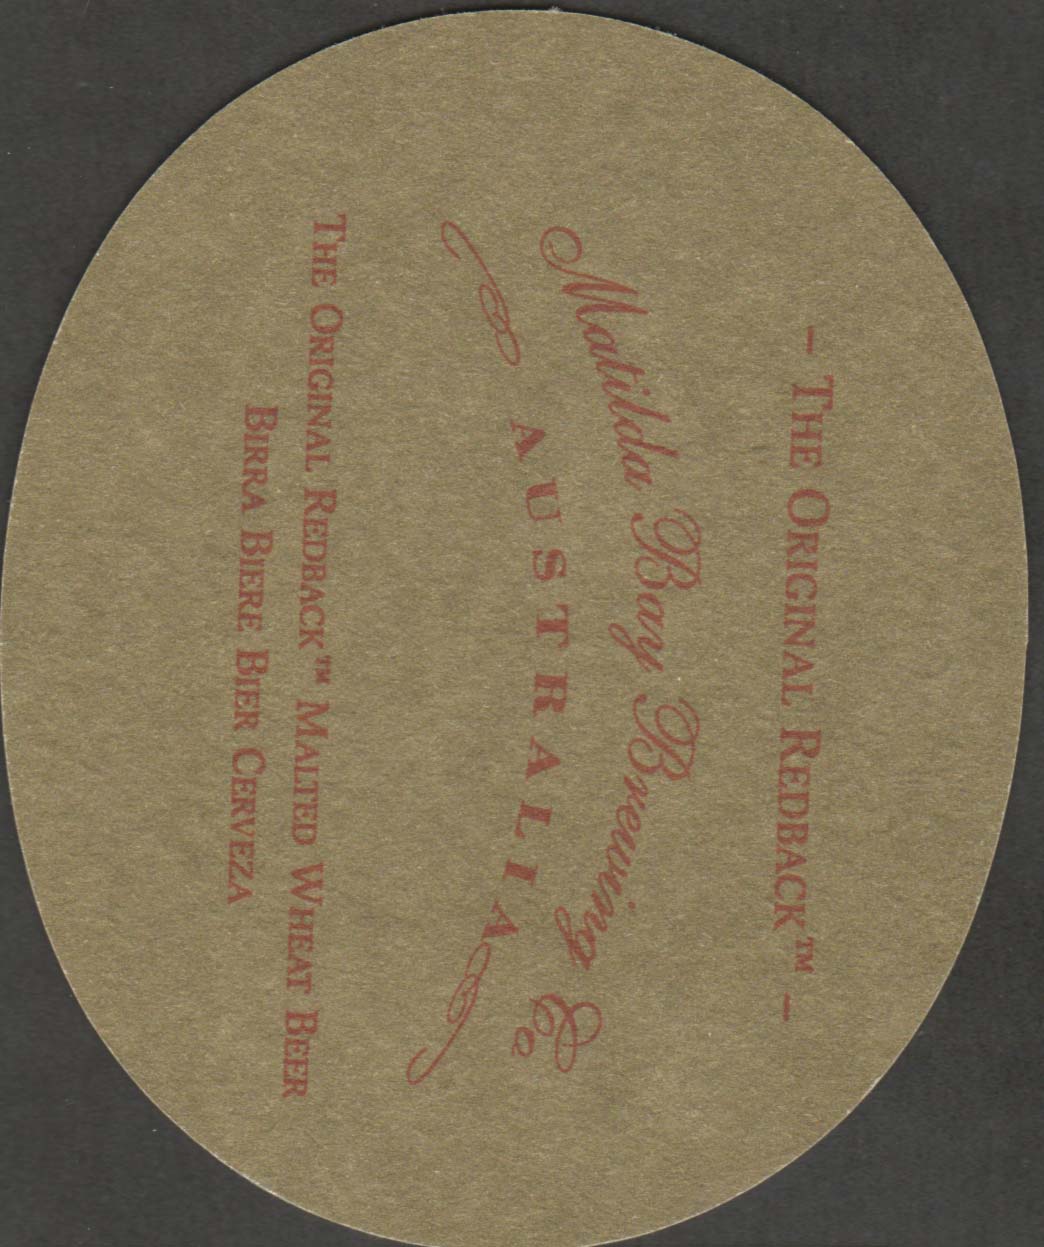 – THE ORIGINAL REDBACK™ –
Matilda Bay Brewing Co
AUSTRALIA
THE ORIGINAL REDBACK™ MALTED WHEAT BEER
BIRRA BIERE BIER CERVEZA